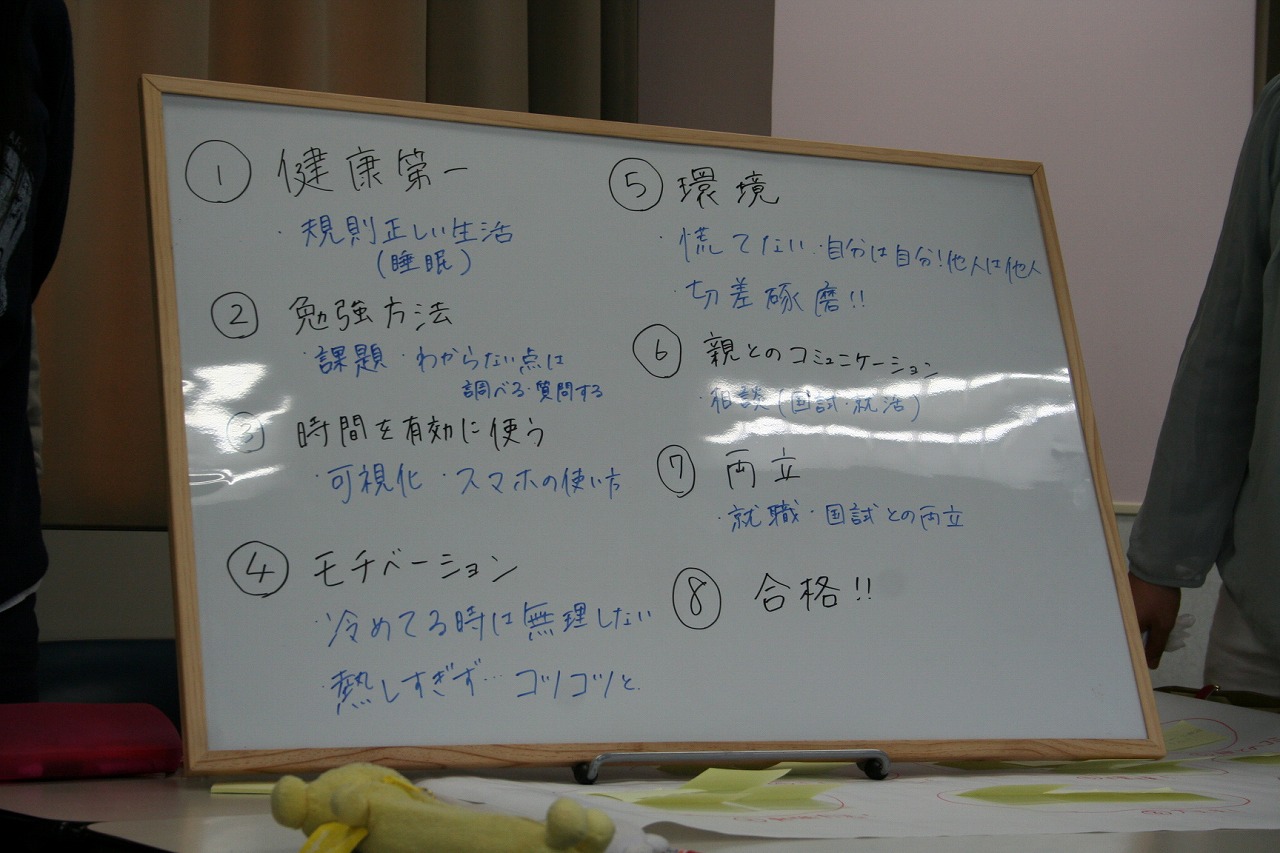 ① 健康第一
・規則正しい生活
(睡眠)
② 勉強方法
・課題 ・わからない点は
調べる・質問する
③ 時間を有効に使う
・可視化 ・スマホの使い方
④ モチベーション
・冷めてる時は無理しない
・熱しすぎず… コツコツと
⑤ 環境
・慌てない ・自分は自分!他人は他人
・切差琢磨!!
⑥ 親とのコミュニケーション
・相談(国試・就活)
⑦ 両立
・就職・国試との両立
⑧ 合格!!